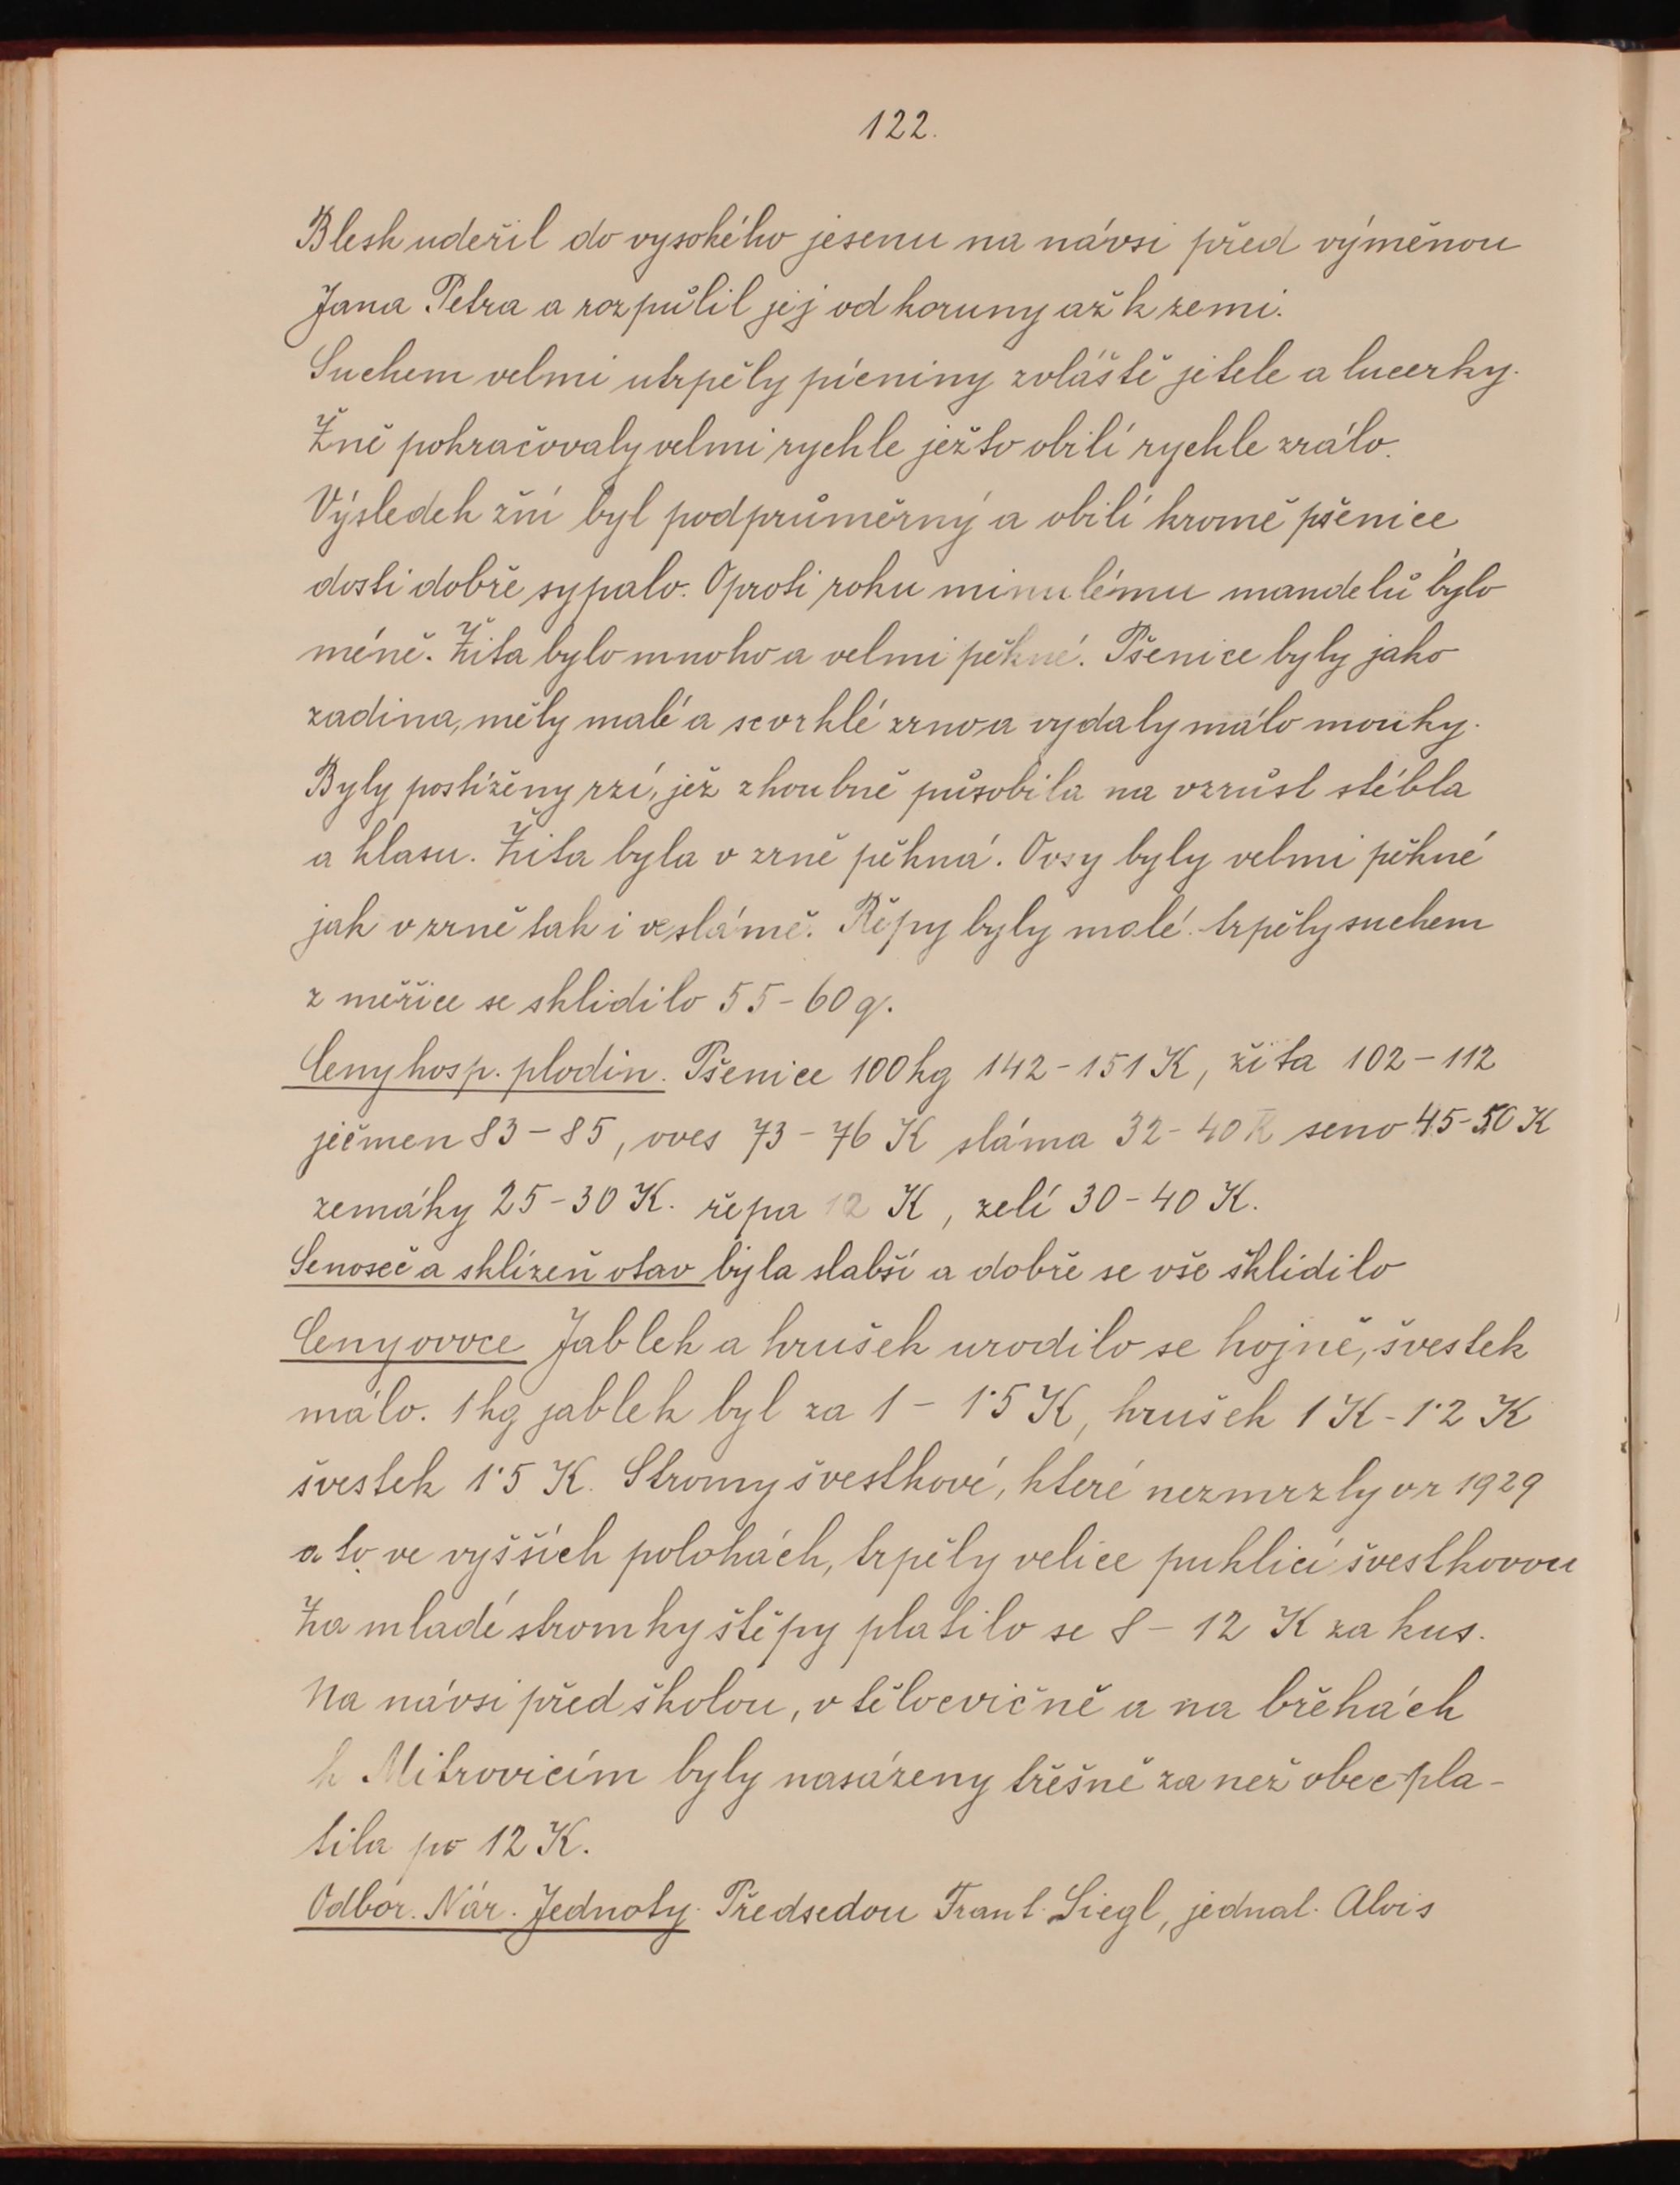 122.
Blesk udeřil do vysokého jesenu na návsi před výměnou
Jana Petra a rozpůlil jej od koruny až k zemi.
Suchem velmi utrpěly pícniny zvláště jetele a lucerky.
Žně pokračovaly velmi rychle ježto obilí rychle zrálo.
Výsledek žní byl podprůměrný a obilí kromě pšenice
dosti dobře sypalo. Oproti roku minulému mandelů bylo
méně. Žita bylo mnoho a velmi pěkné. Pšenice byly jako
zadina, měly malé a scvrklé zrno a vydaly málo mouky.
Byly postiženy rzí, jež zhoubně působila na vzrůst stébla
a klasu. Žita byla v zrně pěkná. Ovsy byly velmi pěkné
jak v zrně tak i ve slámě. Řepy byly malé. trpěly suchem
z měřice se sklidilo 55-60 q.
Ceny hosp. plodin. Pšenice 100 kg 142-151 K, žita 102-112
ječmen 83-85, oves 73-76 K sláma 32-40 K seno 45-50 K
zemáky 25-30 K. řepa 12 K, zelí 30-40 K.
Senoseč a sklizeň otav byla slabší a dobře se vše sklidilo
Ceny ovoce Jablek a hrušek urodilo se hojně, švestek
málo. 1 kg jablek byl za 1 - 1·5 K, hrušek 1 K - 1·2 K
švestek 1·5 K. Stromy švestkové, které nezmrzly v r 1929
a to ve vyšších polohách, trpěly velice puklicí švestkovou
Za mladé stromky štěpy platilo se 8 - 12 K za kus.
Na návsi před školou, v tělocvičně a na břehách
k Mitrovicím byly nasázeny třešně za než obec pla-
tila po 12 K.
Odbor. Nár. Jednoty. Předsedou Frant. Siegl, jednal. Alois